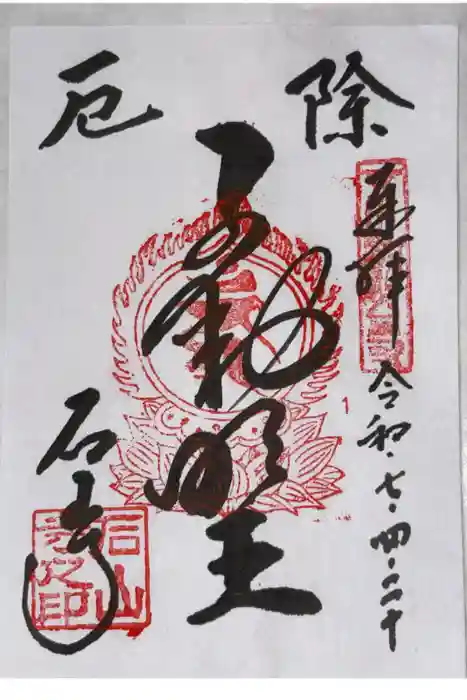 除厄
奉拝
令和七・四・二十
不動明王
石山寺
石山寺之印